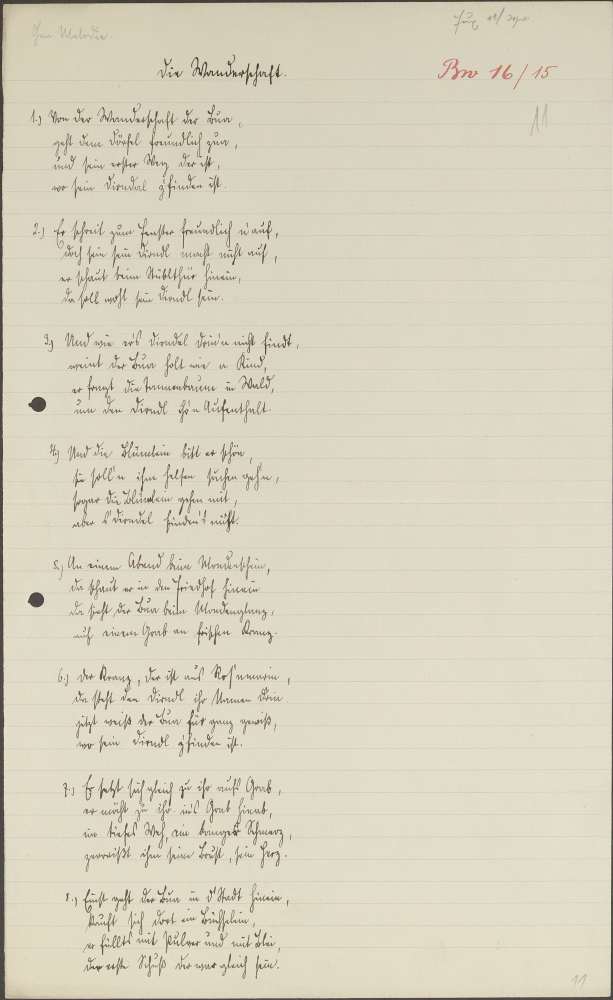 Die Wanderschaft.
Bw 16/15
11
1.) Von der Wanderschaft der Bua,
geht dem Dörfel freundlich zua,
und sein erster Weg der ist,
wo sein Dirndal z'finden ist.
2.) Er schreit zum Fenster freundlich n'auf,
doch sein Dirndl macht nicht auf,
er schaut beim Stüblthür hinein,
da soll wohl sein Dirndl sein.
3.) Und wie er's Dirndel drin'n nicht findt,
weint der Bua holt wie a Kind,
er fragt die Tannenbaum in Wald,
um den Dirndl ihr'n Aufenthalt.
4.) Und die Blümlein bitt er schön,
sie soll'n ihm helfen suchen geh'n,
sogar die Blümlein gehen mit,
aber s'Dirndel finden's nicht.
5.) An einem Abend beim Mondenschein,
da schaut er in den Friedhof hinein
da sieht der Bua beim Mondenglanz,
auf einem Grab an frischen Kranz.
6.) Der Kranz, der ist aus Ros'nmarin,
da steht den Dirndl ihr Namen drin
jetzt weiß der Bua für ganz gewiß,
wo sein Dirndl z'finden ist.
7.) Er setzt sich gleich zu ihr aufs Grab,
er möcht zu ihr in's Grab hinab,
ein tiefes Weh, ein banges Schmerz,
zerreißt ihm seine Brust, sein Herz.
8.) Einst geht der Bua in d'Stadt hinein,
kauft sich dort ein Büchselein,
er füllts mit Pulver und mit Blei,
der erste Schuß der war gleich sein.
11